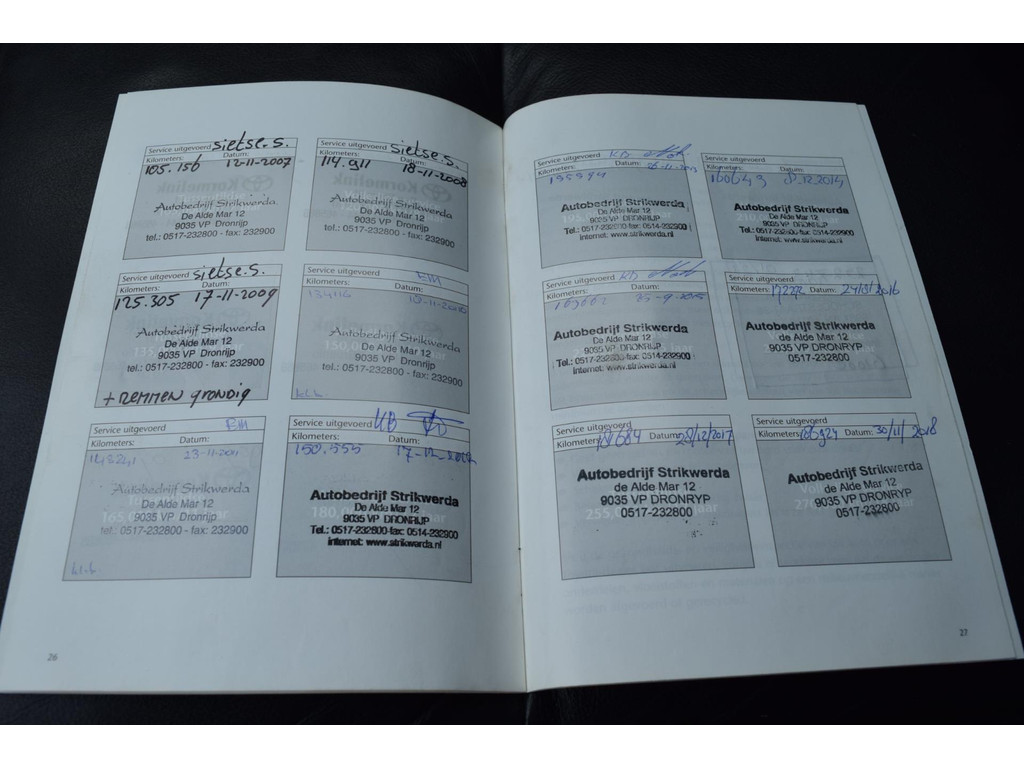 Service uitgevoerd sietse.s.
Kilometers: Datum:
105.156 12-11-2007
Autobedrijf Strikwerda
De Alde Mar 12
9035 VP Dronrijp
tel.: 0517-232800 - fax: 232900
Service uitgevoerd sietse.s.
Kilometers: Datum:
114.911 18-11-2008
Autobedrijf Strikwerda
De Alde Mar 12
9035 VP Dronrijp
tel.: 0517-232800 - fax: 232900
Service uitgevoerd sietse.s.
Kilometers: Datum:
125.305 17-11-2009
Autobedrijf Strikwerda
De Alde Mar 12
9035 VP Dronrijp
tel.: 0517-232800 - fax: 232900
+ remmen grondig
Service uitgevoerd EM
Kilometers: Datum:
134116
Autobedrijf Strikwerda
De Alde Mar 12
9035 VP Dronrijp
tel.: 0517-232800 - fax: 232900
Service uitgevoerd EM
Kilometers: Datum:
Autobedrijf Strikwerda
De Alde Mar 12
9035 VP Dronrijp
tel.: 0517-232800 - fax: 232900
Service uitgevoerd KB
Kilometers: Datum:
150.555
Autobedrijf Strikwerda
De Alde Mar 12
9035 VP DRONRIJP
Tel.: 0517-232800-fax: 0514-232900
internet: www.strikwerda.nl
26
Service uitgevoerd KB
Kilometers: Datum:
Autobedrijf Strikwerda
De Alde Mar 12
9035 VP DRONRIJP
Tel.: 0517-232800-fax: 0514-232900
internet: www.strikwerda.nl
Service uitgevoerd
Kilometers: Datum:
160649 8.12.2014
Autobedrijf Strikwerda
De Alde Mar 12
9035 VP DRONRIJP
Tel.: 0517-232800-fax: 0514-232900
internet: www.strikwerda.nl
Service uitgevoerd KB
Kilometers: Datum:
Autobedrijf Strikwerda
De Alde Mar 12
9035 VP DRONRIJP
Tel.: 0517-232800-fax: 0514-232900
internet: www.strikwerda.nl
Service uitgevoerd
Kilometers: Datum:
Autobedrijf Strikwerda
de Alde Mar 12
9035 VP DRONRYP
0517-232800
Service uitgevoerd
Kilometers: 181684 Datum: 28/12/2017
Autobedrijf Strikwerda
de Alde Mar 12
9035 VP DRONRYP
0517-232800
Service uitgevoerd
Kilometers: 186924 Datum: 30/11/2018
Autobedrijf Strikwerda
de Alde Mar 12
9035 VP DRONRYP
0517-232800
27